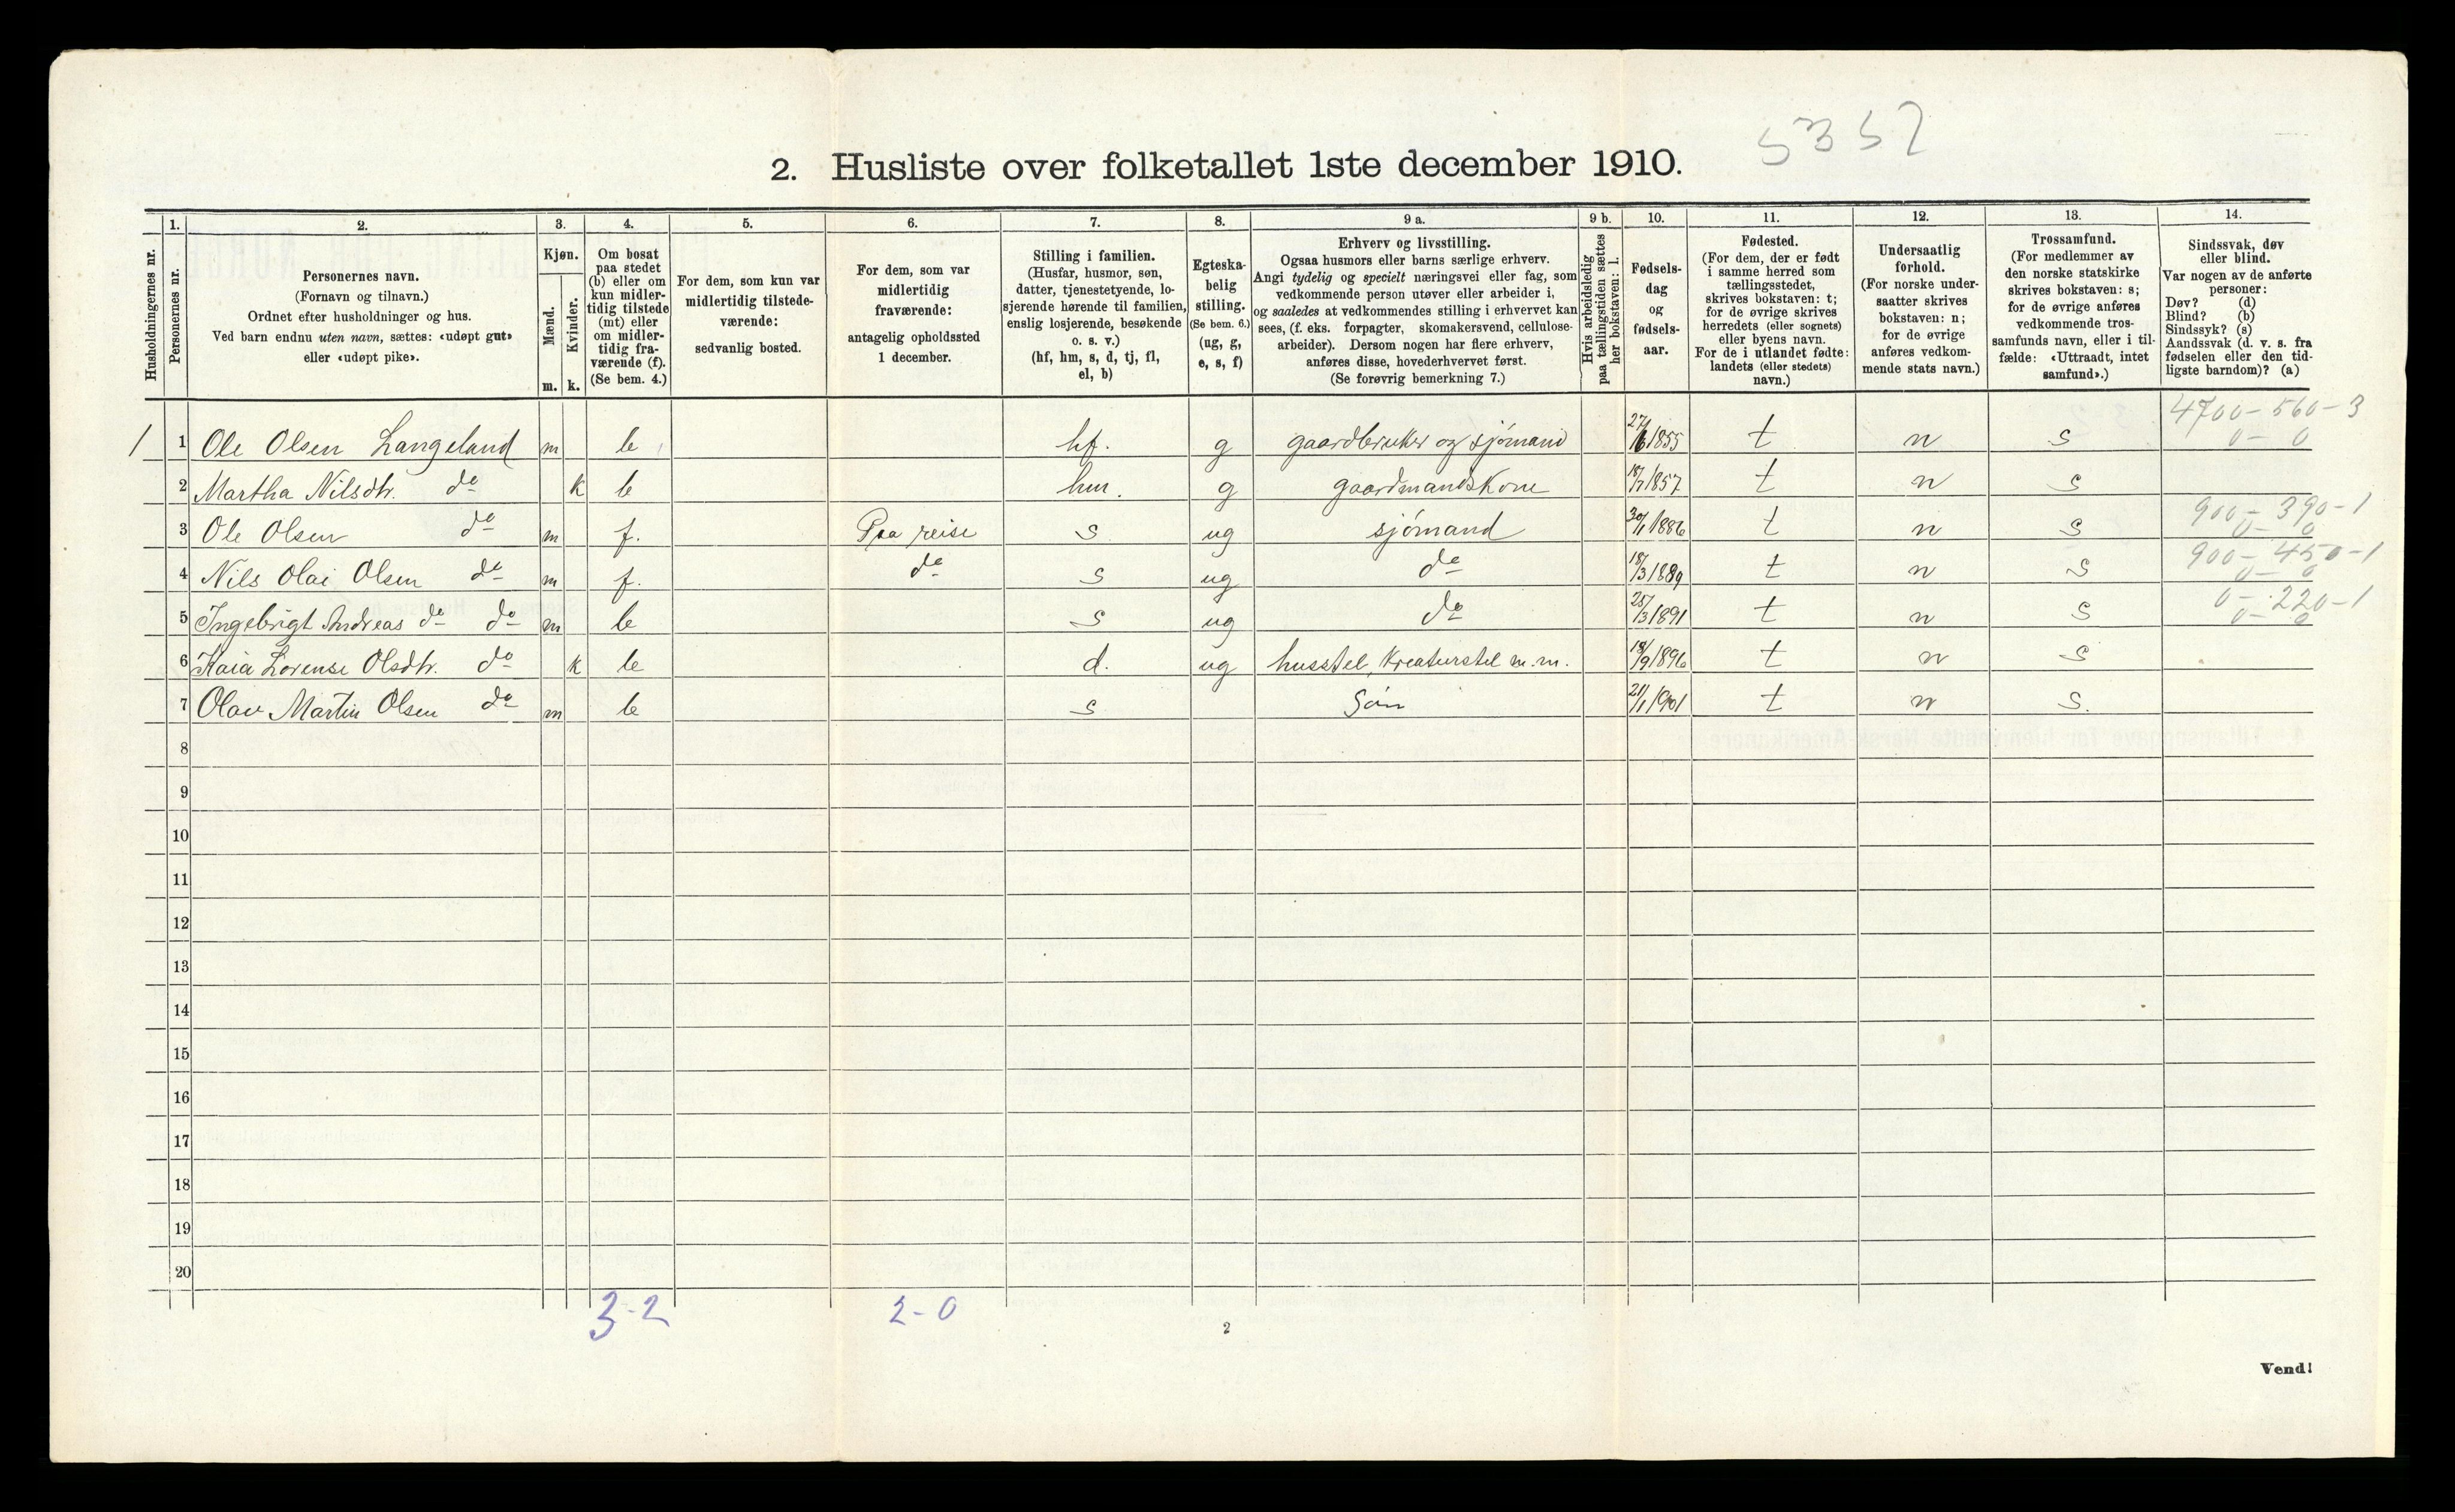 5352
2. Husliste over folketallet 1ste december 1910.
Husholdningernes nr.
1.
Personernes nr.
2.
Personernes navn.
(Fornavn og tilnavn.)
Ordnet efter husholdninger og hus.
Ved barn endnu uten navn, sættes: «udøpt gut»
eller «udøpt pike».
3.
Kjøn.
Mænd.
Kvinder.
m. k.
4.
Om bosat
paa stedet
(b) eller om
kun midler-
tidig tilstede
(mt) eller
om midler-
tidig fra-
værende (f).
(Se bem. 4.)
5.
For dem, som kun var
midlertidig tilstede-
værende:
sedvanlig bosted.
6.
For dem, som var
midlertidig
fraværende:
antagelig opholdssted
1 december.
7.
Stilling i familien.
(Husfar, husmor, søn,
datter, tjenestetyende, lo-
sjerende hørende til familien,
enslig losjerende, besøkende
o. s. v.)
(hf, hm, s, d, tj, fl,
el, b)
8.
Egteska-
belig
stilling.
(Se bem. 6.)
(ug, g,
e, s, f)
9 a.
Erhverv og livsstilling.
Ogsaa husmors eller barns særlige erhverv.
Angi tydelig og specielt næringsvei eller fag, som
vedkommende person utøver eller arbeider i,
og saaledes at vedkommendes stilling i erhvervet kan
sees, (f. eks. forpagter, skomakersvend, cellulose-
arbeider). Dersom nogen har flere erhverv,
anføres disse, hovederhvervet først.
(Se forøvrig bemerkning 7.)
9 b.
Hvis arbeidsledig
paa tællingstiden sættes
her bokstaven: l.
10.
Fødsels-
dag
og
fødsels-
aar.
11.
Fødested.
(For dem, der er født
i samme herred som
tællingsstedet,
skrives bokstaven: t;
for de øvrige skrives
herredets (eller sognets)
eller byens navn.
For de i utlandet fødte:
landets (eller stedets)
navn.)
12.
Undersaatlig
forhold.
(For norske under-
saatter skrives
bokstaven: n;
for de øvrige
anføres vedkom-
mende stats navn.)
13.
Trossamfund.
(For medlemmer av
den norske statskirke
skrives bokstaven: s;
for de øvrige anføres
vedkommende tros-
samfunds navn, eller i til-
fælde: «Uttraadt, intet
samfund».)
14.
Sindssvak, døv
eller blind.
Var nogen av de anførte
personer:
Døv? (d)
Blind? (b)
Sindssyk? (s)
Aandssvak (d. v. s. fra
fødselen eller den tid-
ligste barndom)? (a)
4700 - 560 - 3
1 1 Ole Olsen Langeland m b hf. g gaardbruker og sjømand 27/6 1855 t n s 0 - 0
2 Martha Nilsdtr. do k b hm. g gaardmandskone 18/7 1857 t n s
900 - 390 - 1
3 Ole Olsen do m f. Paa reise s ug sjømand 30/1 1886 t n s 0 - 0
900 - 450 - 1
4 Nils Olai Olsen do m f. do s ug do 18/3 1889 t n s 0 - 0
0 - 220 - 1
5 Ingebrigt Andreas do do m b s ug do 25/3 1891 t n s 0 - 0
6 Kaia Lorense Olsdtr. do k b d. ug husstel, kreaturstel m. m. 18/9 1896 t n s
7 Olav Martin Olsen do m b s Søn 21/1 1901 t n s.
8
9
10
11
12
13
14
15
16
17
18
19
20
3-2 2-0
2
Vend!